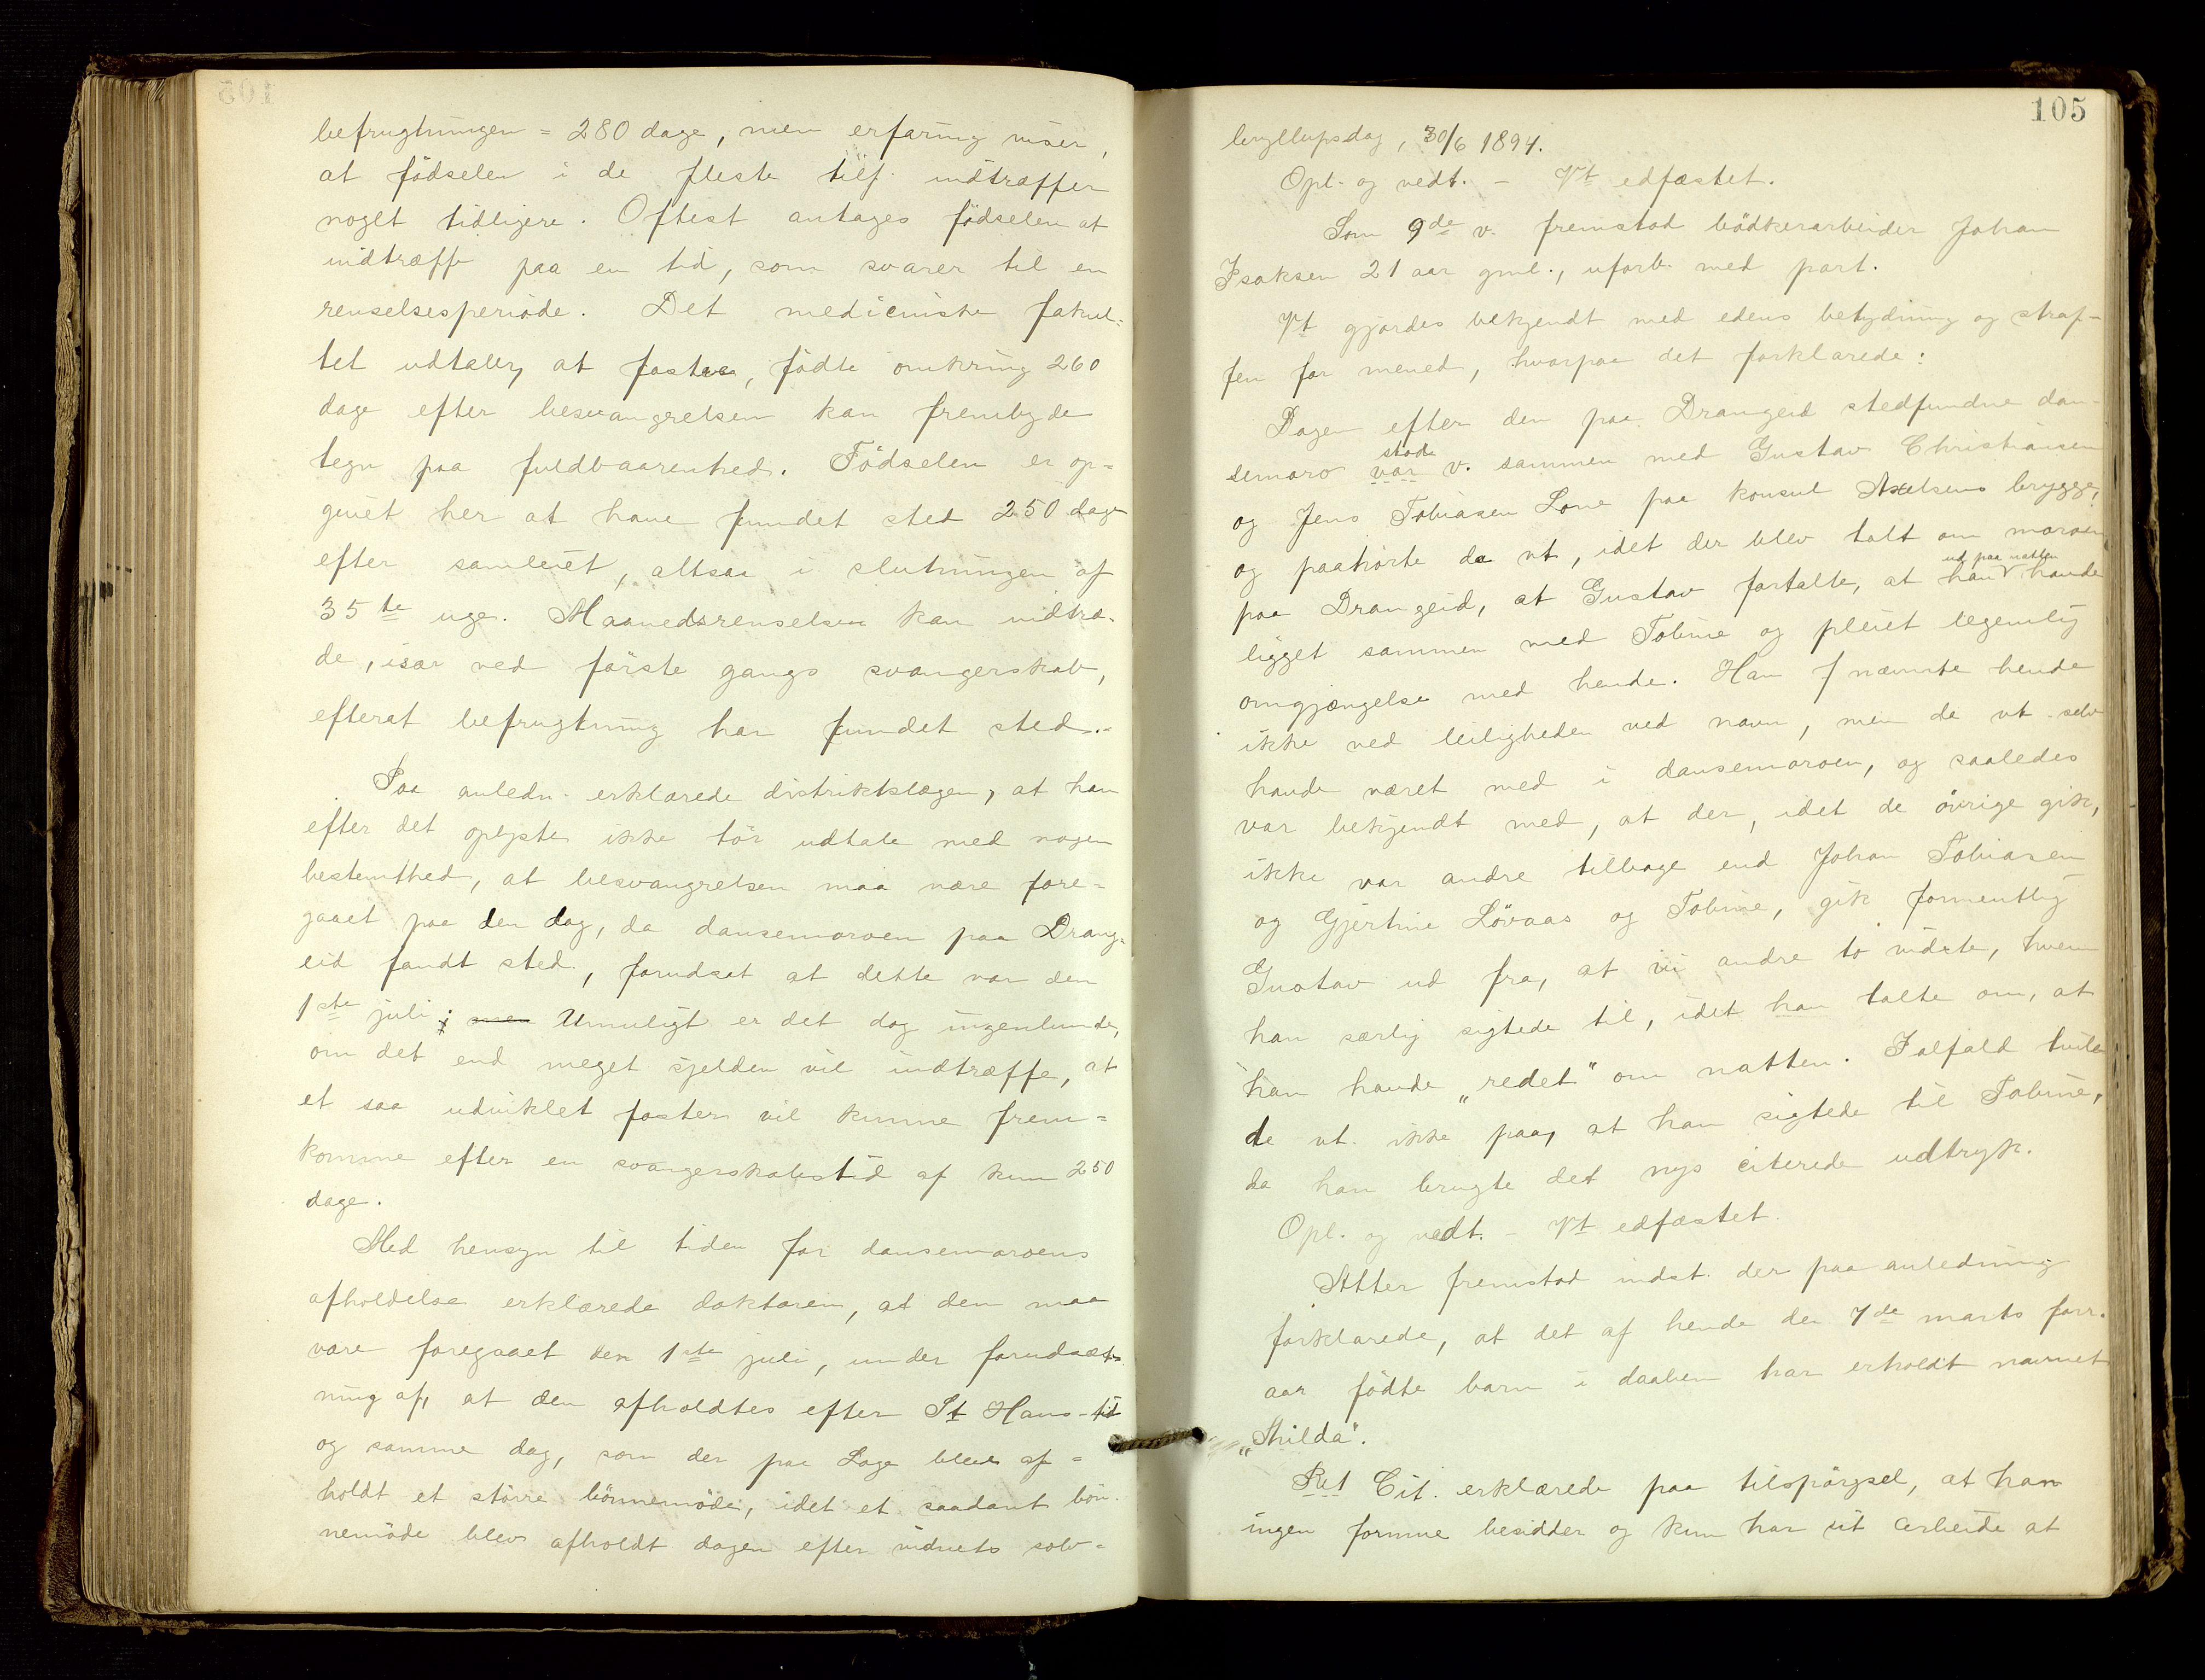 befrugtningen = 280 dage, men erfaring viser,
at fødselen i de fleste tilf. indtræffer
noget tidligere. Oftest antages fødselen at
indtræffe paa en tid, som svarer til en
renselsesperiode. Det medicinske fakul=
tet udtaler, at fostre, fødte omkring 260
dage efter besvangrelsen kan frembyde
tegn paa fuldbaarenhed. Fødselen er op=
givet her at have fundet sted 250 dage
efter samleiet, altsaa i slutningen af
35te uge. Maanedsrenselsen kan indtræ-
de, især ved første gangs svangerskab,
efterat befrugtning har fundet sted.-
Paa anledn. erklærede distriktslægen, at han
efter det oplyste ikke tør udtale med nogen
bestemthed, at besvangrelsen maa være fore=
gaaet paa den dag, da dansemoroen paa Drang=
eid fandt sted, forudsat at dette var den
1ste juli; men Umuligt er det dog ingenlunde,
om det end meget sjelden vil indtræffe, at
et saa udviklet foster vil kunne frem=
komme efter en svangerskabstid af kun 250
dage.
Med hensyn til tiden for dansemoroens
afholdelse erklærede doktoren, at den maa
være foregaaet den 1ste juli, under forudsæt-
ning af, at den afholdtes efter St Hans-tid
og samme dag, som der paa Lage blev af=
holdt et større bønnemøde, idet et saadant bøn-
nemøde blev afholdt dagen efter vidnets sølv=
105
bryllupsdag, 30/6 1894.
Opl. og vedt. - Vt edfæstet.
Som 9de v. fremstod bødkerarbeider Johan
Isaksen 21 aar gml., uforb. med part.
Vt gjordes bekjendt med edens betydning og straf-
fen for mened, hvorpaa det forklarede:
Dagen efter den paa Drangeid stedfundne dan-
stod
semoro var v. sammen med Gustav Christiansen
og Jens Tobiasen Lone paa konsul Axelsens brygge,
og paahørte da vt, idet der blev talt om moroen
ud paa natten
paa Drangeid, at Gustav fortalte, at han havde
ligget sammen med Tobine og pleiet legemlig
omgjængelse med hende. Han nævnte hende
ikke ved leiligheden ved navn, men da vt selv
havde været med i dansemoroen, og saaledes
var bekjendt med, at der, idet de øvrige gik,
ikke var andre tilbage end Johan Tobiasen
og Gjertine Løvaas og Tobine, gik formentlig
Gustav ud fra, at vi andre to vidste, hvem
han særlig sigtede til, idet han talte om, at
han havde „redet" om natten. Ialfald tvile
de vt. ikke paa, at han sigtede til Tobine,
da han brugte det nys citerede udtryk.
Opl. og vedt. - Vt edfæstet.
Atter fremstod indst. der paa anledning
forklarede, at det af hende den 7de marts forr.
aar fødte barn i daaben har erholdt navnet
„Thilda".
Cit. erklærede paa tilspørgsel, at han
ingen formue besidder og kun har sit arbeide at